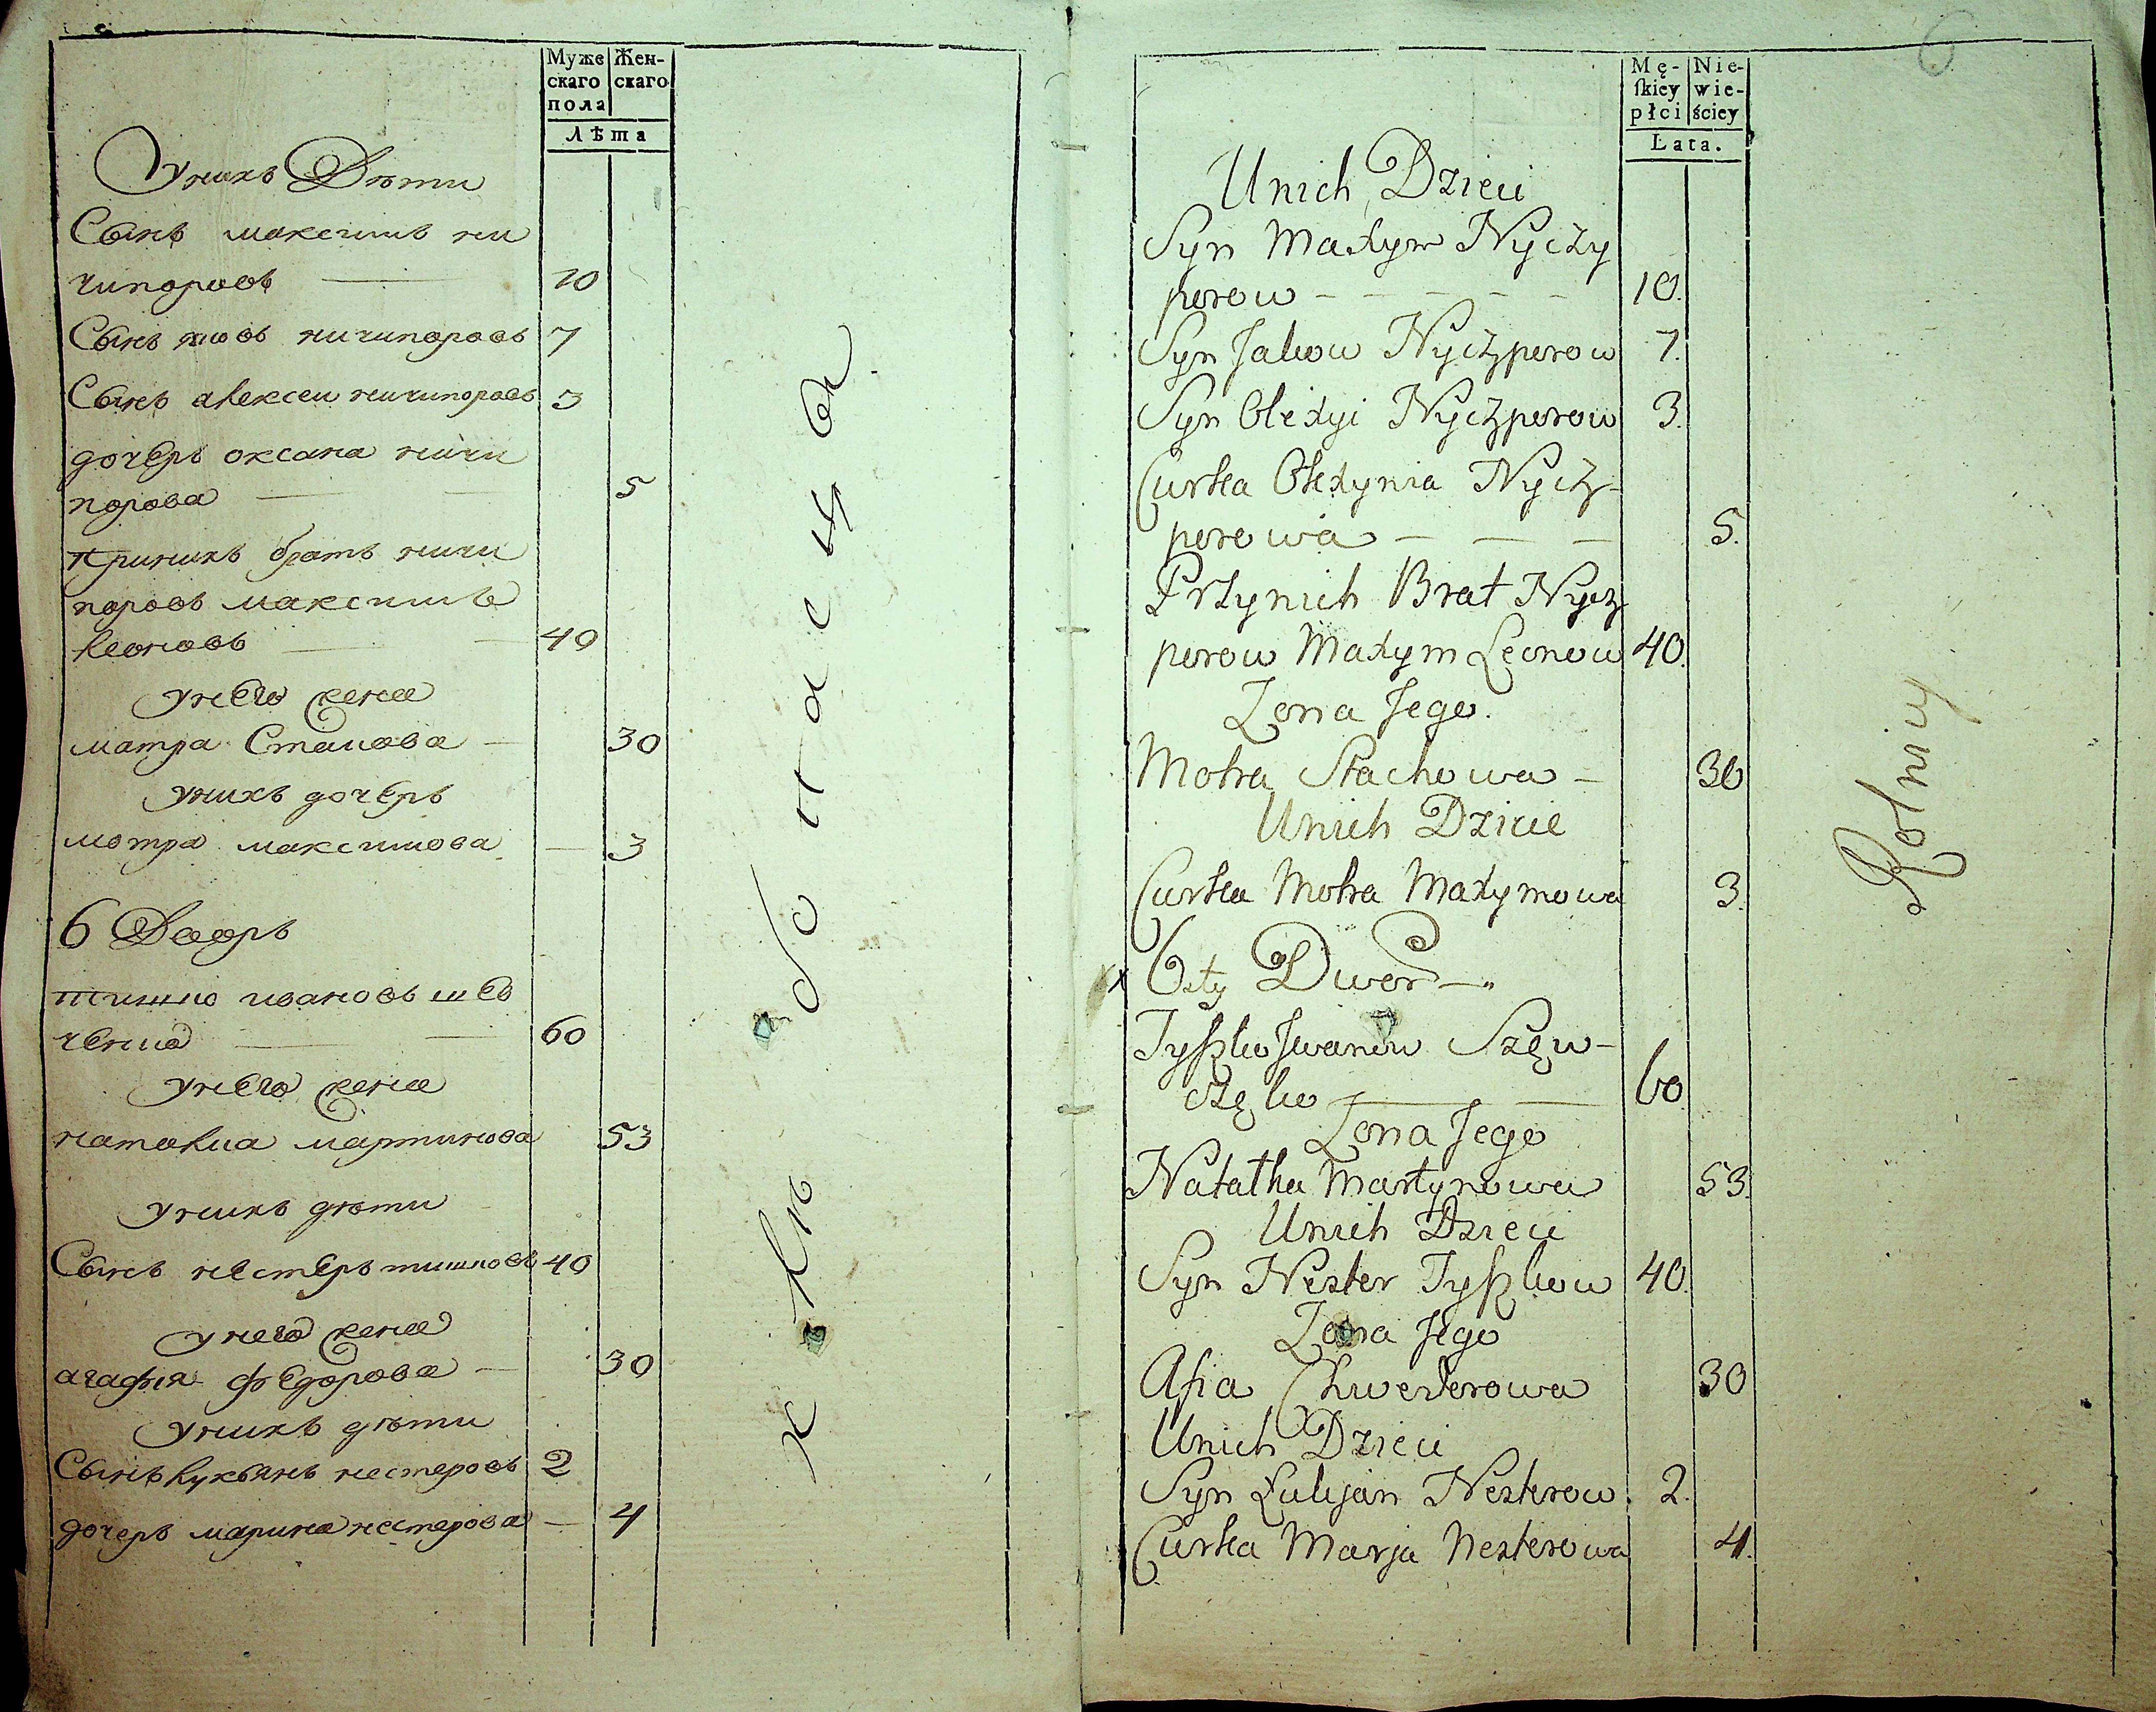 Муже
скаго
пола
Жен-
скаго
Лѣта
Унихъ Дѣти
Сынъ максимъ ни
чипоровъ — 10
Сынъ яковъ ничипоровъ 7
Сынъ алексеи ничипоровъ 3
дочерь оксана ничи
порова — — 5
принихъ братъ ничи
поровъ максимъ
леоновъ — — 40
унего жена
матра Стахова — 30
унихъ дочерь
мотра максимова — 3
6 Дворъ
тишко ивановъ шев
ченко — — 60
унего жена
наталиа мартинова 53
унихъ дѣти
Сынъ нестеръ тишковъ 40
унего жена
агафия федорова — 30
унихъ дѣти
Сынъ лукьянъ нестеровъ 2
дочерь марина нестерова — 4
хлѣбопащцы
6
Mę-
ſkiey
płci
Nie-
wie-
ściey
Lata.
Unich Dzieci
Syn Maxym Nyczy
porow - - - - - 10.
Syn Jakow Nyczyporow 7.
Syn Olexyi Nyczyporow 3.
Curka Olexynia Nyczy-
porowa — — — 5.
Przynich Brat Nyczy
porow Maxym Leonow 40.
Zona Jego.
Motra Stachowa — 30
Unich Dzicie
Curka Motra Maxymowa 3.
6sty Dwor —.
Tyſzko Jwanow Szew-
częko — — 60
Zona Jego
Natalka Martynowa 53.
Unich Dzieci
Syn Nester Tyſzkow 40.
Zona Jego
Afia Chwederowa 30
Unich Dzieci
Syn Łukjan Nesterow. 2.
Curka Marja Nesterowa 4.
Rolnicy